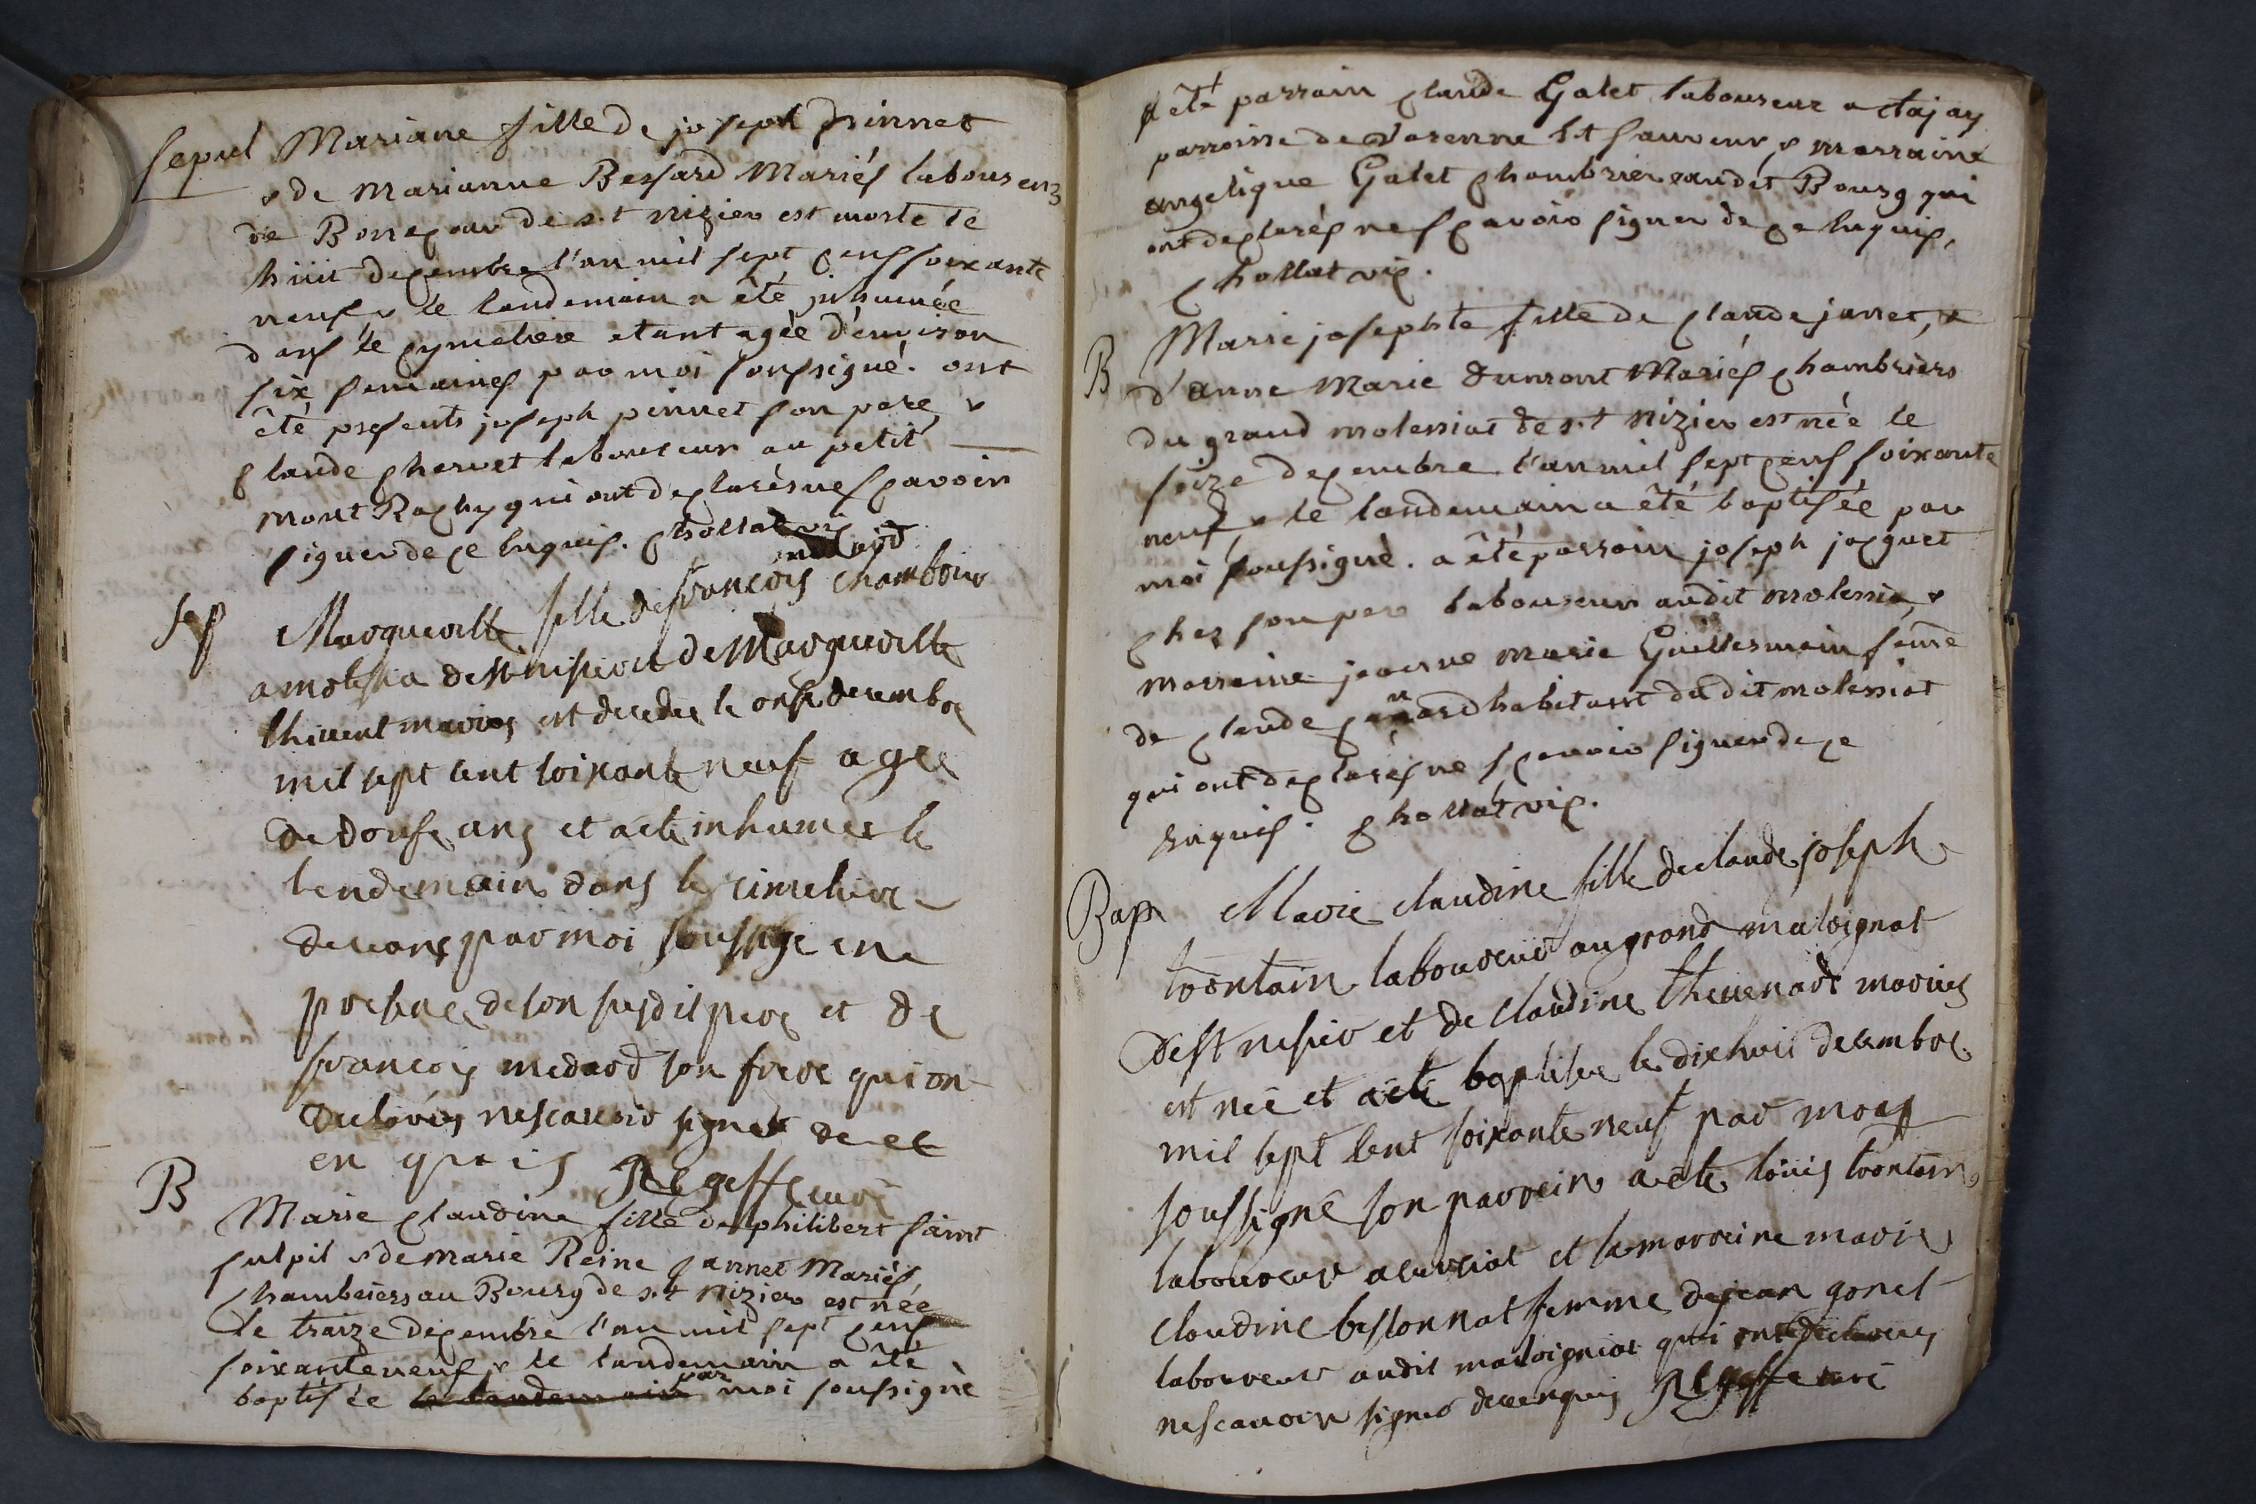 sepul Mariane fille de joseph pinnet
& de marianne Bessard Mariés laboureurs
de Bonrepour de s.t nizier est morte le
hüit decembre l'an mil sept cens soixante
neuf & le landemain a été jnhumée
dans le cymetiere etant agée d'environ
six semaines par moi soussigné. ont
été presents joseph pinnet son pere, &
claude chervet laboureur au petit
mont Rachy qui ont declarés ne sçavoir
signer de ce enquis. chollat vic
medard
sep Marguerite fille de francois chambrier
a molesia de st nisier et de Marguerite
thivent maries est decedee le onse decembre
mil sept cent soixante neuf agee
de douse ans et a ete inhumee le
lendemain dans le cimetiere
de ceans par moi soussige en
presence de son susdit pere et de
francois medard son frere qui on
declarés ne scavoir signer de ce
en quis Regeffe curé
B Marie claudine fille de philibert saint
sulpil & de marie Reine jannet Mariés
chambriers au Bourg de s.t nizier est née
le traize decembre l'an mil sept cens
soixante neuf & le landemain a été
baptisée le landemain par moi soussigné
a été parrain claude Galet laboureur a
parroisse de varenne s.t sauveur & marraine
angelique Galet chambriere audit Bourg qui
ont declarés ne sçavoir signer de ce enquis,
chollat vic.
B Marie josephte fille de claude jarret, &
d'anne Marie dumont Mariés chambriers
du grand molessiat de s.t nizier est née le
seize decembre l'an mil sept cens soixante
neuf, & le landemain a été baptisée par
moi soussigné. a été parrain joseph jacquet
chez son pere laboureur audit molessia, &
marraine jeanne marie Guillermain feme
de claude habitant du dit molessiat
qui ont declarés ne sçavoir signer de ce
enquis. chollat vic.
Bap Marie claudine fille de claude joseph
tontain laboureur au grand maloignat
de st nisier et de claudine thevenard maries
est neé et a été baptisee le dixhuit decembre
mil sept cent soixante neuf par moy
soussigné son parrein a ete loüis tontein
laboureur a et sa marreine marie
claudine bessonnat femme de jean gonet
laboureur audit maloigniat qui ont declarés
ne scavoir signer de ce enquis Regeffe curé